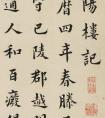 陽樓記
曆四年春滕
守巴陵郡越
通人和百癈